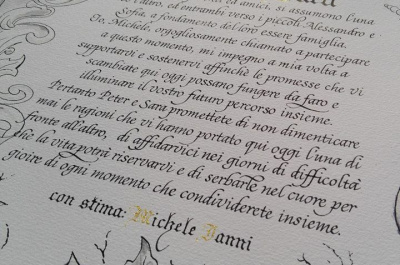 ed amici, si assumono l'una
l'altro, ed entrambi verso i piccoli Alessandro e
Sofia, a fondamento del loro essere famiglia.
Io, Michele, orgogliosamente chiamato a partecipare
a questo momento, mi impegno a mia volta a
supportarvi e sostenervi affinchè le promesse che vi
scambiate qui oggi possano fungere da faro e
illuminare il vostro futuro percorso insieme.
Pertanto Peter e Sara promettete di non dimenticare
mai le ragioni che vi hanno portato qui oggi l'una di
fronte all'altro, di affidarvici nei giorni di difficoltà
chè la vita potrà riservarvi e di serbarle nel cuore per
gioire di ogni momento che condividerete insieme.
con stima: Michele Ianni